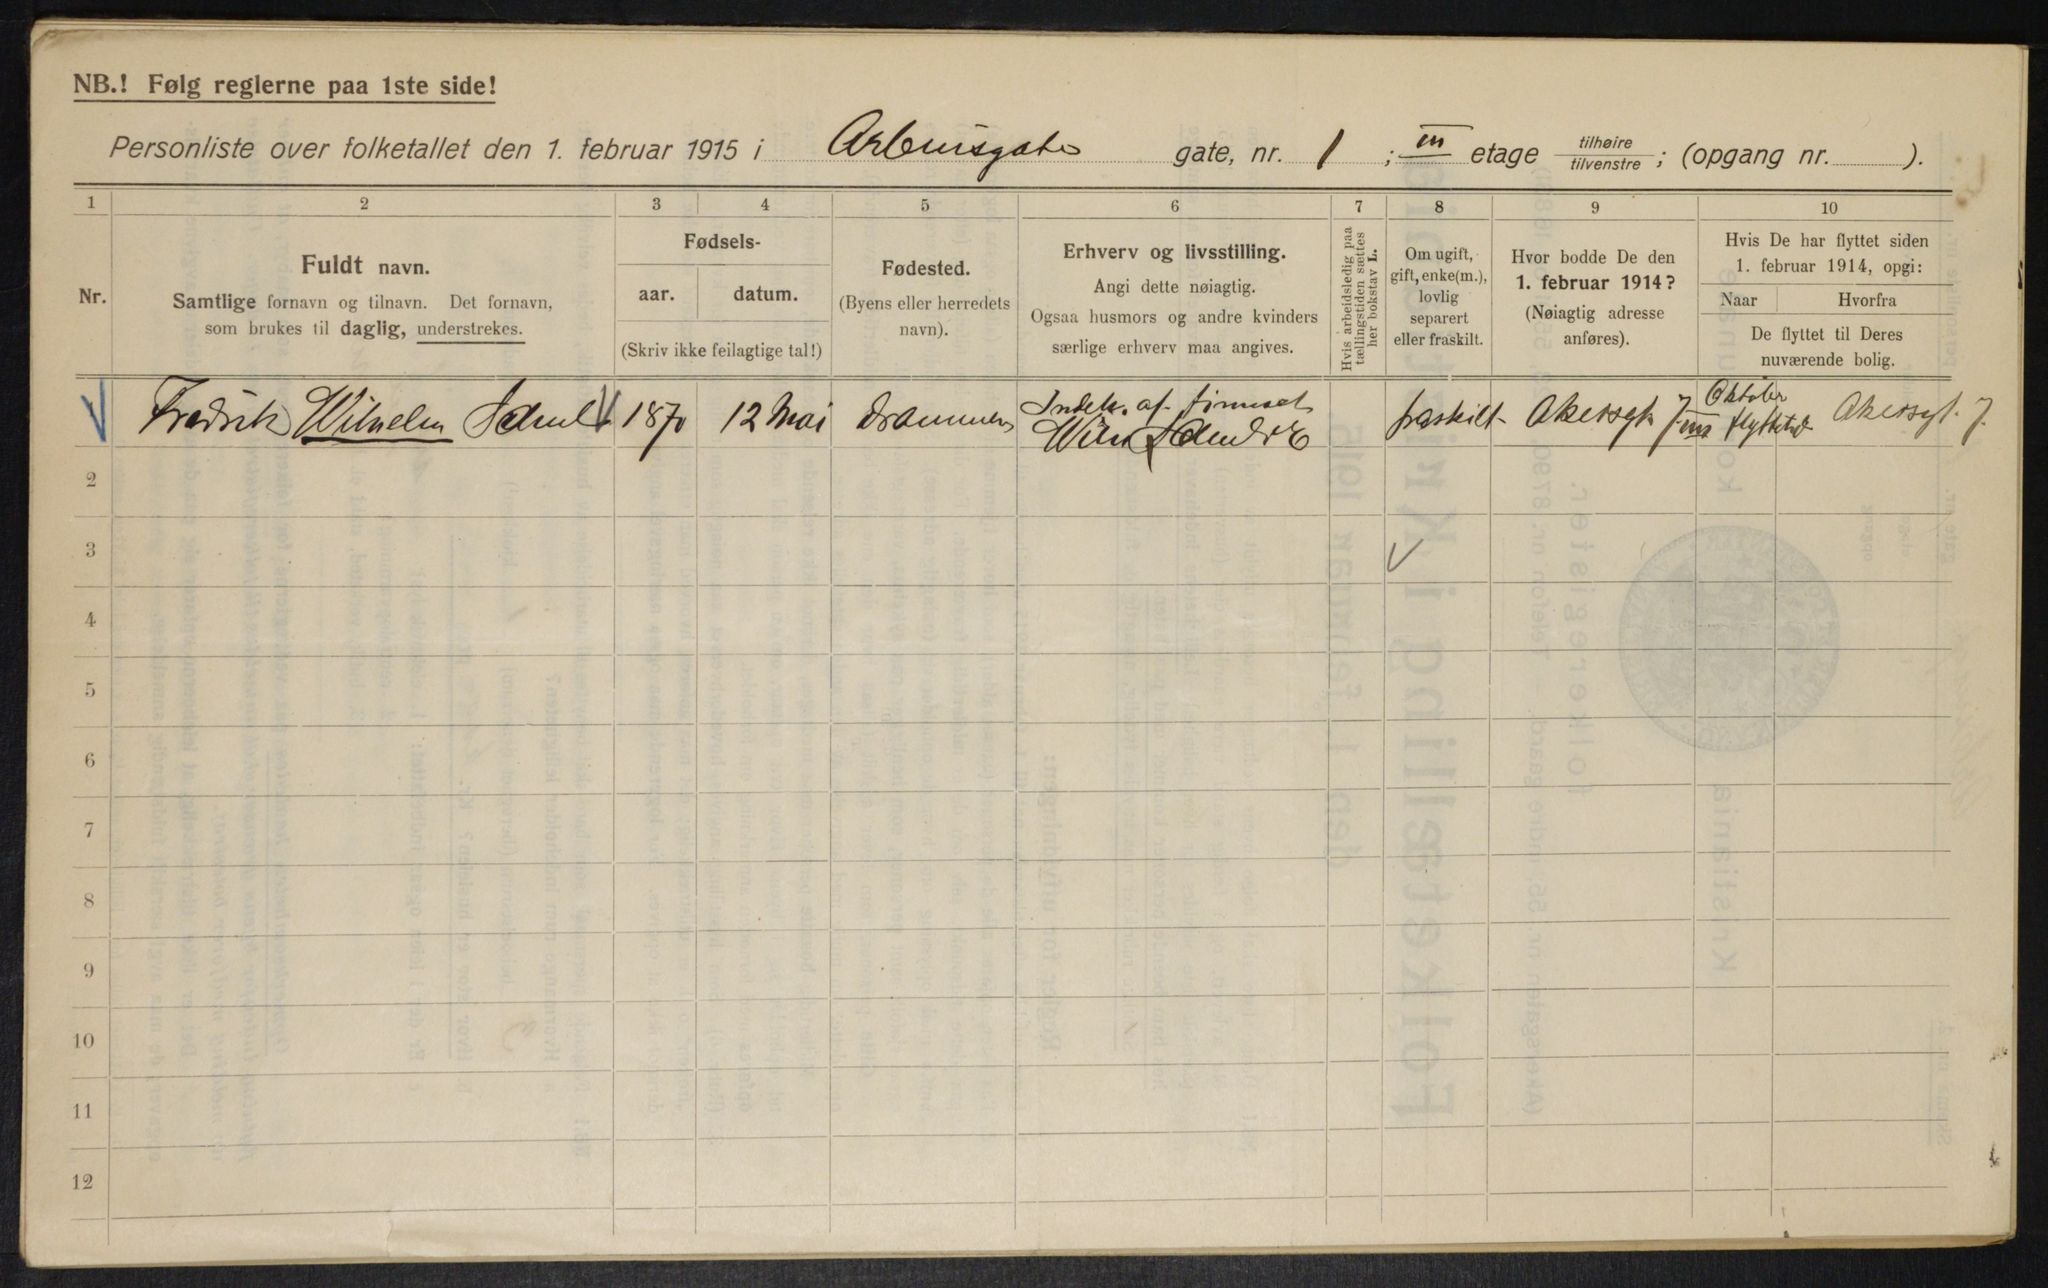 NB.! Følg reglerne paa 1ste side!
Personliste over folketallet den 1. februar 1915 i Arbinsgate gate, nr. 1 ; III etage tilhøire tilvenstre ; (opgang nr. ).
1 2 3 4 5 6 7 8 9 10
Nr.
Fuldt navn.
Samtlige fornavn og tilnavn. Det fornavn,
som brukes til daglig, understrekes.
Fødsels-
aar. datum.
(Skriv ikke feilagtige tal!)
Fødested.
(Byens eller herredets
navn).
Erhverv og livsstilling.
Angi dette nøiagtig.
Ogsaa husmors og andre kvinders
særlige erhverv maa angives.
Hvis arbeidsledig paa
tællingstiden sættes
her bokstav L.
Om ugift,
gift, enke(m.),
lovlig
separert
eller fraskilt.
Hvor bodde De den
1. februar 1914?
(Nøiagtig adresse
anføres).
Hvis De har flyttet siden
1. februar 1914, opgi:
Naar Hvorfra
De flyttet til Deres
nuværende bolig.
Fredrik Wilhelm 1870 12 Mai Drammen Indeh. af firmaet
Wilh fraskilt Akersgt. 7 III Oktober
flyttet Akersgt. 7.
2
3
4
5
6
7
8
9
10
11
12